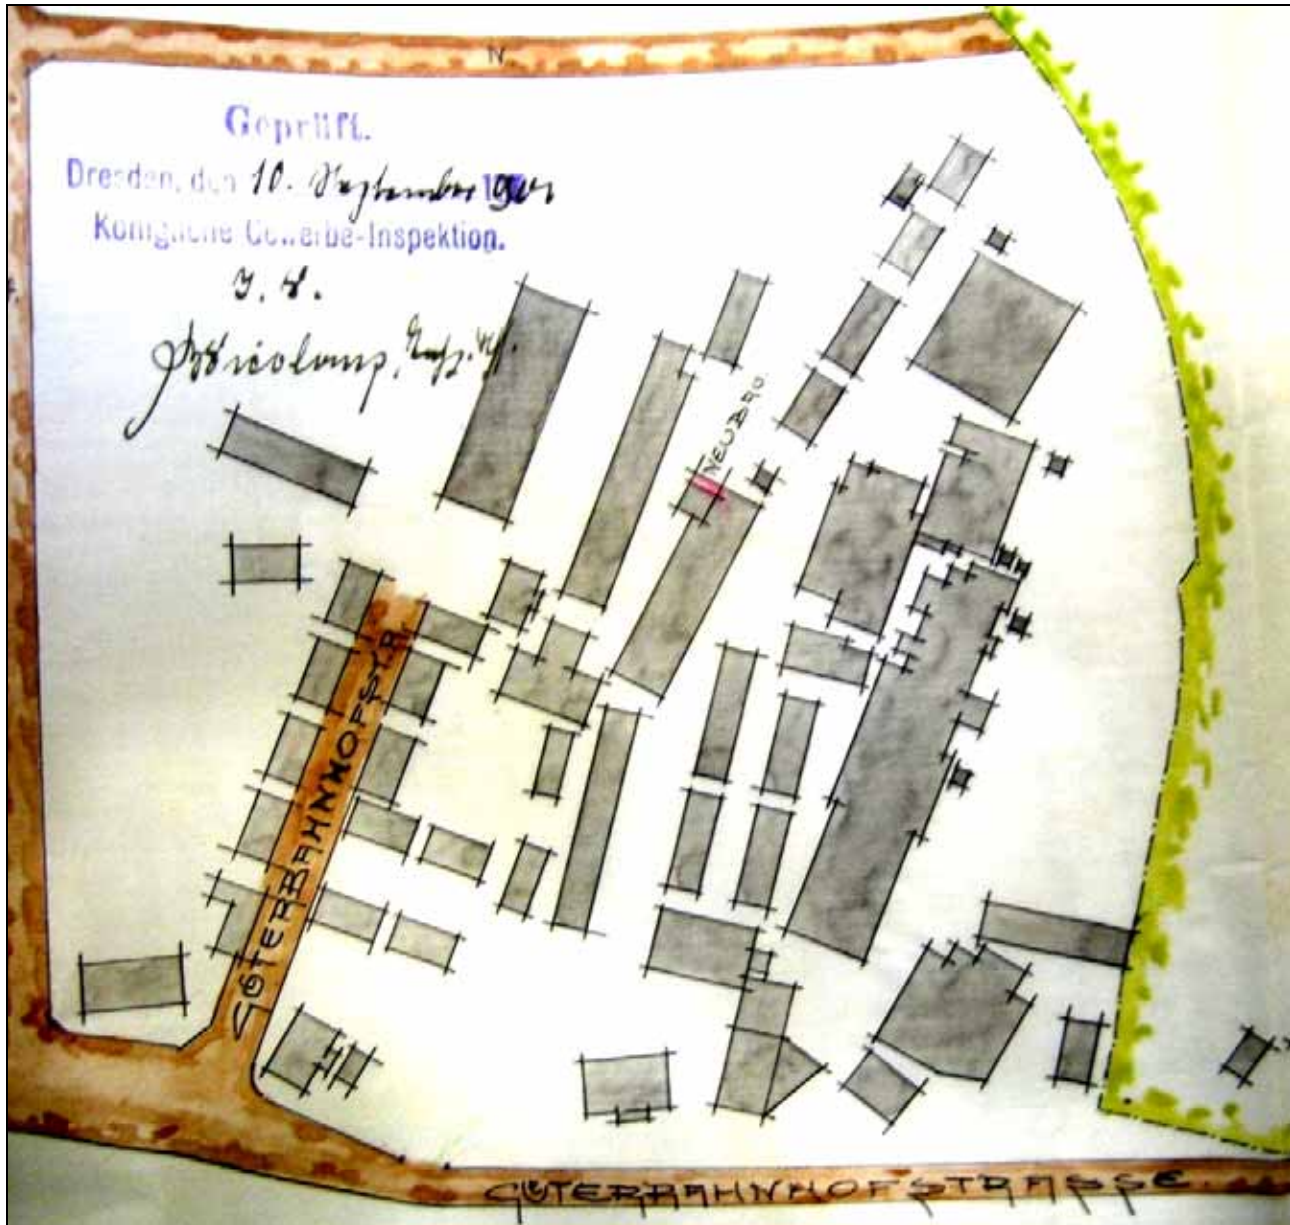 N
Geprüft.
Dresden, den 10. September 1901
Königliche Gewerbe-Inspektion.
J. V.
NEUBAU.
GÜTERBAHNHOFSTR.
GÜTERBAHNHOFSTRASSE